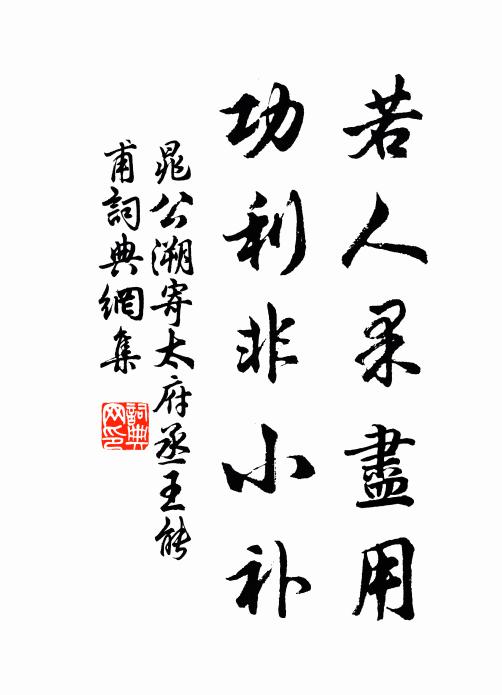 若人果盡用
功利非小补
晁公溯寄太府丞王能
甫詞典網集
詞典
网印